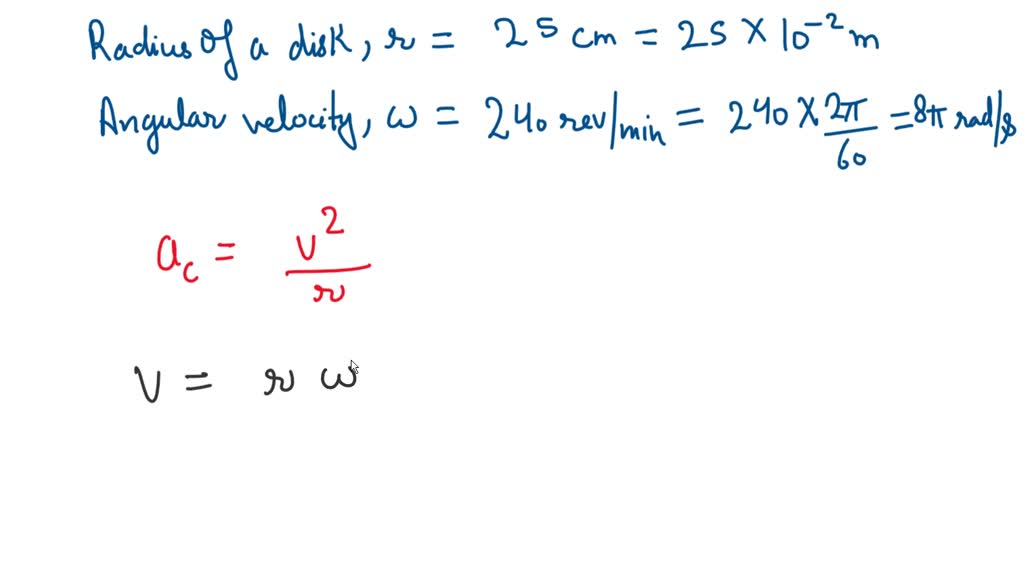 Radius of a disk, r = 25 cm = 25 × 10⁻² m
Angular velocity, ω = 240 rev/min = 240 × 2π/60 = 8π rad/s
a_c = v²/r
v = r ω